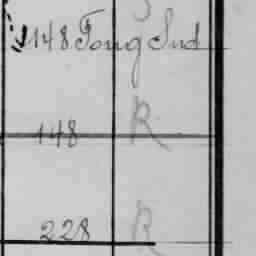 148 Tong Ind
148 R
228 R